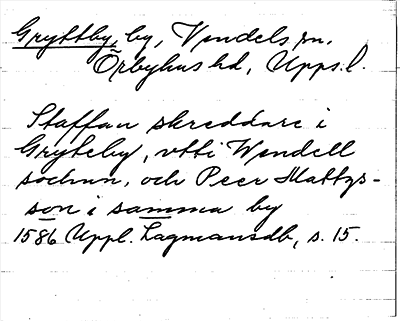 Gryttby, by, Vendels sn.
Örbyhus hd, Upps. l.
Staffan skreddare i
Gryteby, vtti Wendell
sochnn, och Peer Mattys-
son i samma by
1586 Uppl. Lagmansdb, s. 15.